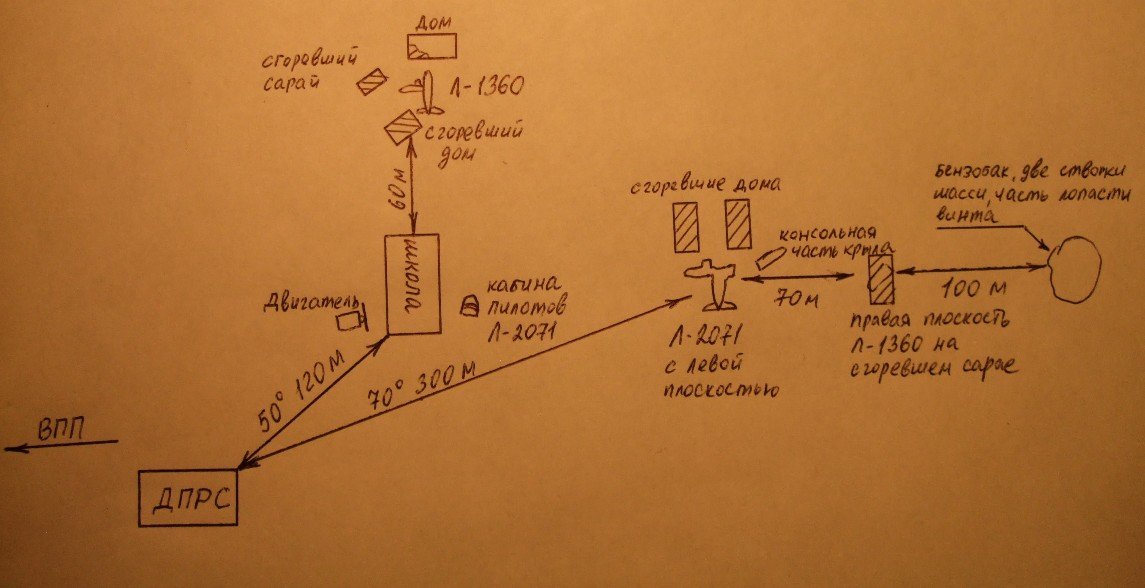 дом
сгоревший
сарай
Л-1360
сгоревший
дом
60 м
школа
Двигатель
кабина
пилотов
Л-2071
сгоревшие дома
консольная
часть крыла
Бензобак, две створки
шасси, часть лопасти
винта
70 м
100 м
Л-2071
с левой
плоскостью
правая плоскость
Л-1360 на
сгоревшем сарае
50° 120 м
70° 300 м
ВПП
ДПРС